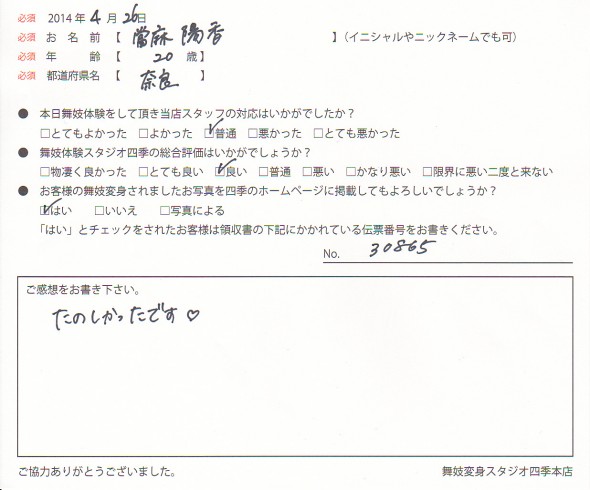 必須 2014年4月26日
必須 お名前【當麻 陽香】(イニシャルやニックネームでも可)
必須 年齢【20歳】
必須 都道府県名【奈良】
● 本日舞妓体験をして頂き当店スタッフの対応はいかがでしたか？
□とてもよかった □よかった ☑普通 □悪かった □とても悪かった
● 舞妓体験スタジオ四季の総合評価はいかがでしょうか？
□物凄く良かった □とても良い ☑良い □普通 □悪い □かなり悪い □限界に悪い二度と来ない
● お客様の舞妓変身されましたお写真を四季のホームページに掲載してもよろしいでしょうか？
☑はい □いいえ □写真による
「はい」とチェックをされたお客様は領収書の下記にかかれている伝票番号をお書きください。
No. 30865
ご感想をお書き下さい。
たのしかったです♡
ご協力ありがとうございました。 舞妓変身スタジオ四季本店